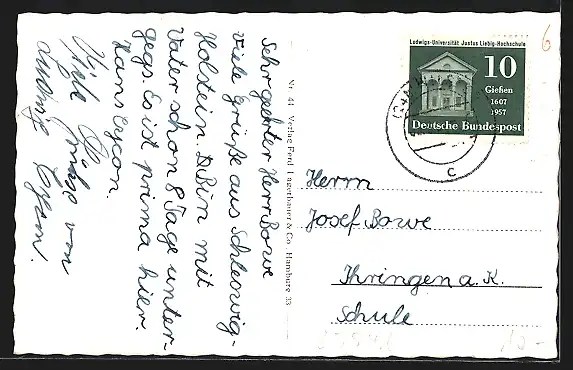 Sehr geehrter Herr Bowe
viele Grüße aus Schleswig-
Holstein. Bin mit
Vater schon 8 Tage unter-
wegs. Es ist prima hier.
Hans
Viele Grüße von
Nr. 44 Verlag Ferd. Lagerbauer & Co. Hamburg 33
Ludwigs-Universität Justus Liebig-Hochschule
10
Gießen
1607
1957
Deutsche Bundespost
c
6
Herrn
Josef Bowe
Ihringen a. K.
Schule
10-